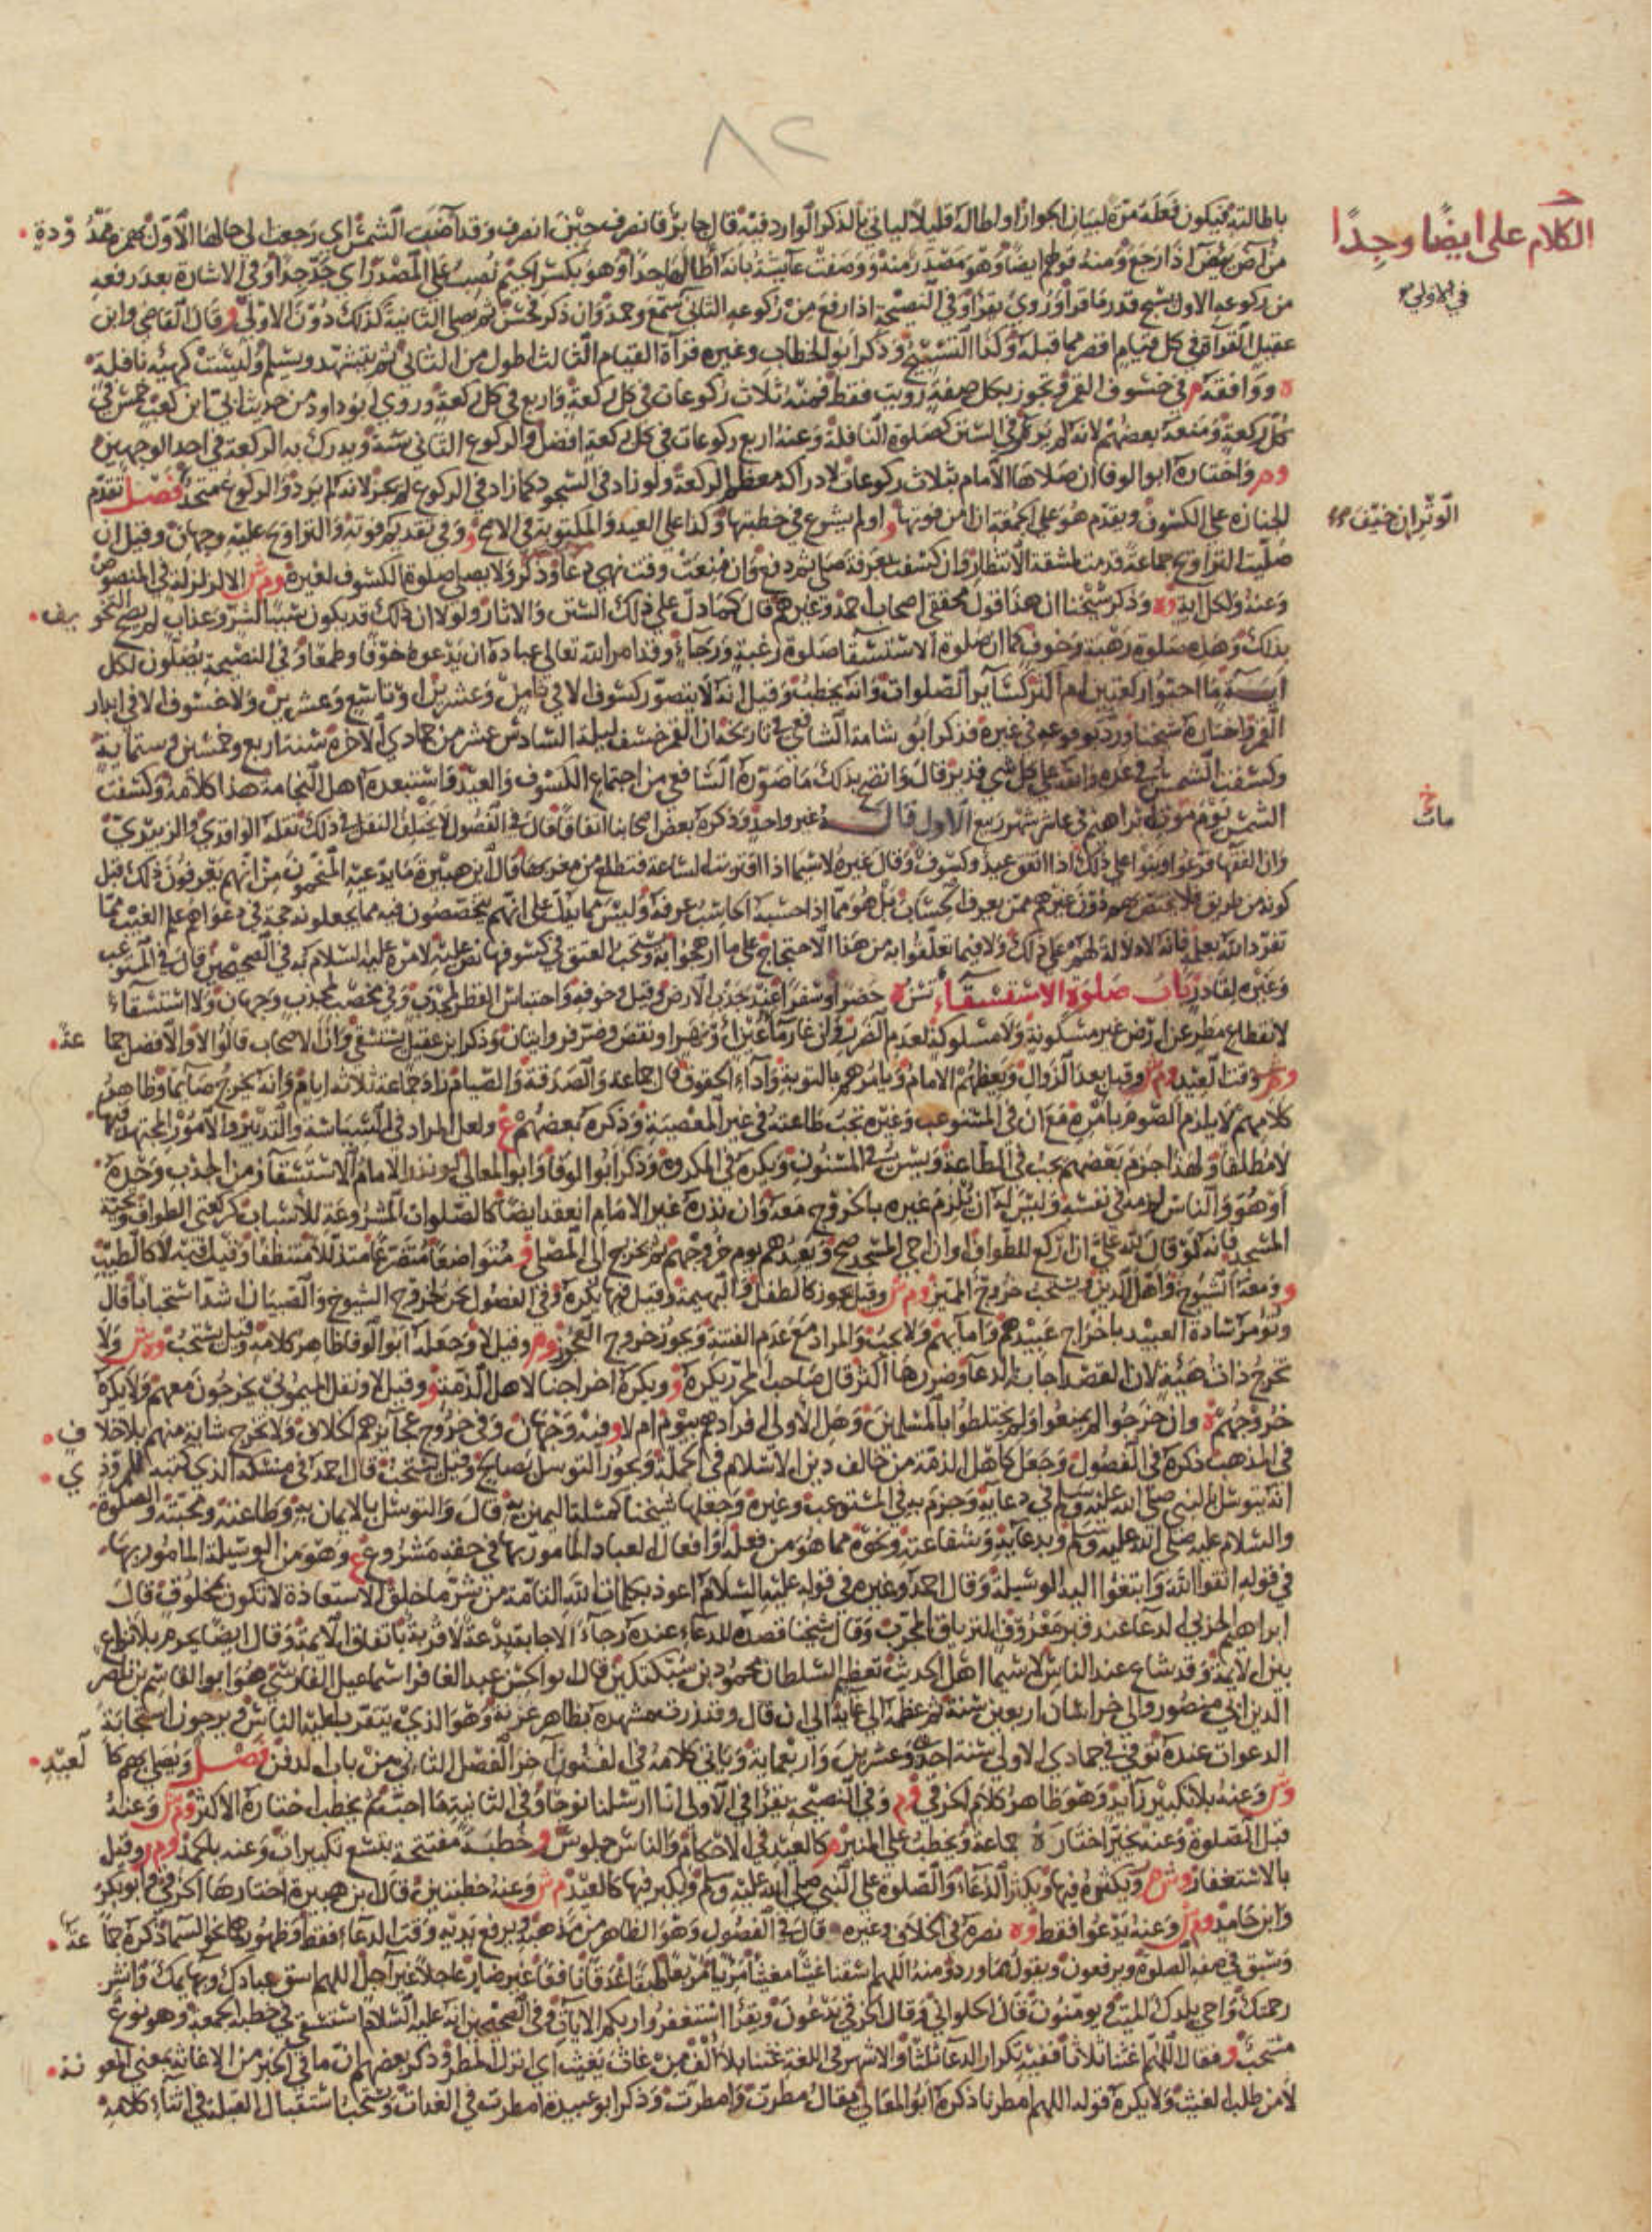 ٨٢
الكلام على ايضًا وجدًا
باطالته فيكون فعله مرة لبيان الجواز او اطاله قليلا لياتي بالذكر الوارد فيه قال جابر فانصرف حين انصرف وقد آضت الشمس اي رجعت الى حالها الاول بهمزة ممدودة
من آض يئيض اذا رجع ومنه قولهم ايضا وهو مصدر منه ووصفت عايشة بانه اطالها جدا وهو بكسر الجيم نصب على المصدر اي جد جدا وفي الاشارة بعد رفعه
في الاولى
من ركوعه الاول يسبح قدر ما قرا وروي يقرا وفي النصيحة اذا رفع من ركوعه الثاني سمع وحمد وان ذكر فحسن ثم يصلي الثانية كذلك دون الاولى و قال القاضي وابن
عقيل القرآة في كل قيام اقصر مما قبله وكذا التسبيح وذكر ابو الخطاب وغيره قرآة القيام الثالث اطول من الثاني ثم يتشهد ويسلم وليست كهيئة نافلة
ه ووافقه م في خسوف القمر وتجوز بكل صفة رويت فقط فمنه ثلاث ركوعات في كل ركعة واربع في كل ركعة وروى ابو داود من حديث ابي ابن كعب خمس في
كل ركعة ومنعه بعضهم لانه لم يرو في السنن كصلوة النافلة وعنه اربع ركوعات في كل ركعة افضل والركوع الثاني سنة ويدرك به الركعة في احد الوجهين
وم واختاره ابو الوفا ان صلاها الامام بثلاث ركوعات لادراكه معظم الركعة ولو زاد في السجود كما زاد في الركوع لم يجز لانه لم يرد والركوع متحد فصل تقدم
الجنازة على الكسوف ويقدم هو على الجمعة ان امن فوتها و او لم يشرع في خطبتها وكذا على العيد والمكتوبة في الاصح و وفي تقديم فوته والتراويح عليه وجهان وقيل ان
الوتر ان خيف
صليت التراويح جماعة قدمت لمشقة الانتظار وان كسفت بعرفة صلى ثم دفع وان منعت وقت نهي دعا وذكر ولا يصلي صلوة الكسوف لغيره وم ش الا لزلزلة في المنصوص
وعنه ولكل اية وه وذكر شيخنا ان هذا قول محققي اصحاب احمد وغيرهم قال كما دل على ذلك السنن والاثار ولولا ان ذلك قد يكون سببا لشر وعذاب لم يصح التخويف
بذلك وهذه صلوة رهبة وخوف كما ان صلوة الاستسقا صلوة رغبة ورجاء وقد امر الله تعالى عباده ان يدعوه خوفا وطمعا وفي النصيحة يصلون لكل
اية ما احبوا ركعتين ام اكثر كسائر الصلوات وانه يخطب وقيل انه لا يتصور كسوف الا في ثامن وعشرين او تاسع وعشرين ولا خسوف الا في ابدار
القمر واختاره شيخنا ورد بوقوعه في غيره فذكر ابو شامة الشافعي في تاريخه ان القمر خسف ليلة السادس عشر من جمادي الآخرة سنة اربع وخمسين وستماية
وكسفت الشمس في غده والله على كل شي قدير قال واتضح بذلك ما صوره الشافعي من اجتماع الكسوف والعيد واستبعده اهل النجامة هذا كلامه وكسفت
خ
مات
الشمس يوم موت ابراهيم في عاشر شهر ربيع الاول قاله غير واحد وذكره بعض اصحابنا اتفاقا قال في الفصول لا يختلف النقل في ذلك نقله الواقدي والزبيري
وان الفقها فرعوا وبنوا على ذلك اذا اتفق عيد وكسوف وقال غيره لا سيما اذا اقتربت الساعة فتطلع من مغربها قال ابن هبيرة ما يدعيه المنجمون من انهم يعرفون ذلك قبل
كونه من طريق فلا يختص بهم دون غيرهم ممن يعرف الحساب بل هو مما اذا حسبه الحاسب عرفه وليس مما يدل على انهم يتخصصون فيه مما يجعلونه حجة في دعواهم علم الغيب مما
تفرد الله بعلمه فانه لا دلالة لهم على ذلك ولا فيما تعلقوا به من هذا الاحتجاج على ما ارهجوا به ويستحب العتق في كسوفها نص عليه لامره عليه السلام به في الصحيحين قال في المستوعب
وغيره لقادر باب صلوة الاستسقاء تسن ه حضرا وسفرا عند جدب الارض وقيل وخوفه واحتباس القطر لمجدب وفي مخصب لمجدب وجهان ولا استسقاء
لانقطاع مطر عن ارض غير مسكونة ولا مسلوكة لعدم الضرر وان غار ماء عين او نهر او نقص وضر فروايتان وذكر ابن عقيل يستسقى وان الاصحاب قالوا لا والافضل جماعة
وهو وقت العيد وم ش وقيل بعد الزوال ويعظهم الامام ويامرهم بالتوبة واداء الحقوق قال جماعة والصدقة والصيام زاد جماعة ثلاثة ايام وانه يخرج صائما وظاهر
كلامهم لا يلزم الصوم بامره مع ان في المستوعب وغيره تجب طاعته في غير المعصية وذكره بعضهم ع ولعل المراد في السياسة والتدبير والامور المجتهد فيها
لا مطلقا ولهذا جزم بعضهم تجب في الطاعة وتسن في المسنون وتكره في المكروه وذكر ابو الوفا وابو المعالي لو نذر الامام الاستسقآ زمن الجدب وحده
او هو والناس لزمه في نفسه وليس له ان يلزم غيره بالخروج معه وان نذره غير الامام انعقد ايضا كالصلوات المشروعة للاسباب كركعتي الطواف وتحية
المسجد فانه لو قال لله علي ان اركع للطواف او ان احي المسجد صح ويعدهم يوم خروجهم ثم يخرج الى المصلى و متواضعا متضرعا متذللا متنظفا وقيل فيه لا كالطيب
و ومعه الشيوخ واهل الدين ويستحب خروج المميز وم ش وقيل يجوز كالطفل والبهيمة وقيل فيها يكره وفي الفصول نحن لخروج الشيوخ والصبيان اشد استحبابا قال
وتؤمر سادة العبيد باخراج عبيدهم وامائهم ولا يجب والمراد مع عدم الفتنة ويجوز خروج العجوز وم وقيل لا وجعله ابو الوفا ظاهر كلامه وقيل يستحب وه ش ولا
تخرج ذات هيئة لان القصد اجابة الدعا وضررها اكثر قال صاحب المحرر يكره و ويكره اخراجنا لاهل الذمة و وقيل لا ونقل الميموني يخرجون معهم ولا يكره
خروجهم ه وان خرجوا لم يمنعوا ولم يختلطوا بالمسلمين وهل الاولى افرادهم بيوم ام لا و فيه وجهان وفي خروج عجائزهم الخلاف ولا تخرج شابة منهم بلا خلاف
في المذهب ذكره في الفصول وجعل كاهل الذمة من خالف دين الاسلام في الجملة ويجوز التوسل بصالح وقيل يستحب قال احمد في منسكه الذي كتبه للمروذي
انه يتوسل بالنبي صلى الله عليه وسلم في دعايه وجزم به في المستوعب وغيره وجعلها شيخنا كمسئلة اليمين به قال والتوسل بالايمان به وطاعته ومحبته والصلوة
والسلام عليه صلى الله عليه وسلم وبدعايه وشفاعته ونحوه مما هو من فعله او افعال العباد المامور بها في حقه مشروع ع وهو من الوسيلة المامور بها
في قوله اتقوا الله وابتغوا اليه الوسيلة وقال احمد وغيره في قوله عليه السلام اعوذ بكلمات الله التامة من شر ما خلق الاستعاذة لا تكون بمخلوق قال
ابراهيم الحربي الدعا عند قبر معروف الترياق المجرب وقال شيخنا قصده للدعاء عنده رجاء الاجابة بدعة لا قربة باتفاق الايمة وقال ايضا يحرم بلا نزاع
بين الايمة وقد شاع عند الناس لا سيما اهل الحديث تعظيم السلطان محمود بن سبكتكين قال ابو الحسن عبد الغافر اسماعيل الفارسي هو ابو القاسم بن ناصر
الدين ابي منصور والي خراسان اربعين سنة ثم عظمه الى غاية الى ان قال وقد زرت مشهده بظاهر غزنة وهو الذي يتقرب اليه الناس ويرجون استجابة
الدعوات عنده توفي في جمادي الاولى سنة احدى وعشرين واربعماية وياتي كلامه في الفنون آخر الفصل الثاني من باب الدفن فصل ويصلي بهم كالعيد
وش وعنه بلا تكبير زائد وهو ظاهر كلام الخرقي وم وفي النصيحة يقرا في الاولى انا ارسلنا نوحا وفي الثانية ما احب ثم يخطب اختاره الاكثر وم ش وعنه
قبل الصلوة وعنه يخير اختاره جماعة ويخطب على المنبر م كالعيد في الاحكام والناس جلوس و خطبة مفتتحة بتسع تكبيرات وعنه بالحمد وم ر وقيل
بالاستغفار وش م ويكثره فيها ويكثر الدعاء والصلوة على النبي صلى الله عليه وسلم ويكبر فيها كالعيد م ش وعنه خطبتين قال ابن هبيرة اختارها الخرقي وابو بكر
وابن حامد وم ش وعنه يدعوا فقط وه نصره في الخلاف وغيره قال في الفصول وهو الظاهر من مذهبه ويرفع يديه وقت الدعاء فقط وظهورهما نحو السما ذكره جماعة
وسبق في صفة الصلوة ويرفعون ويقول ما ورد ومنه اللهم اسقنا غيثا مغيثا مريا مريعا طبقا غدقا نافعا غير ضار عاجلا غير آجل اللهم اسق عبادك وبهايمك وانشر
رحمتك واحي بلدك الميت ويومنون قال الحلواني وقال الخرقي يدعون ويقرا استغفروا ربكم الايات وفي الصحيحين انه عليه السلام استسقى في خطبة الجمعة وهو نوع
مستحب و فقال اللهم اغثنا ثلاثا ففيه تكرار الدعا ثلثا والاشهر في اللغة غثنا بلا الف من غاث يغيث اي انزل المطر وذكر بعضهم ان ما في الخبر من الاغاثة بمعنى المعونة
لا من طلب الغيث ولا يكره قوله اللهم امطرنا ذكره ابو المعالي يقال مطرت وامطرت وذكر ابو عبيدة امطرت في العذاب ويستحب استقبال القبلة في اثناء كلامه